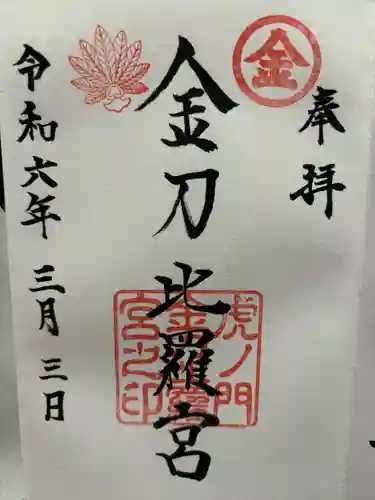 奉拝
金
金刀比羅宮
虎ノ門
宮之印
令和六年三月三日